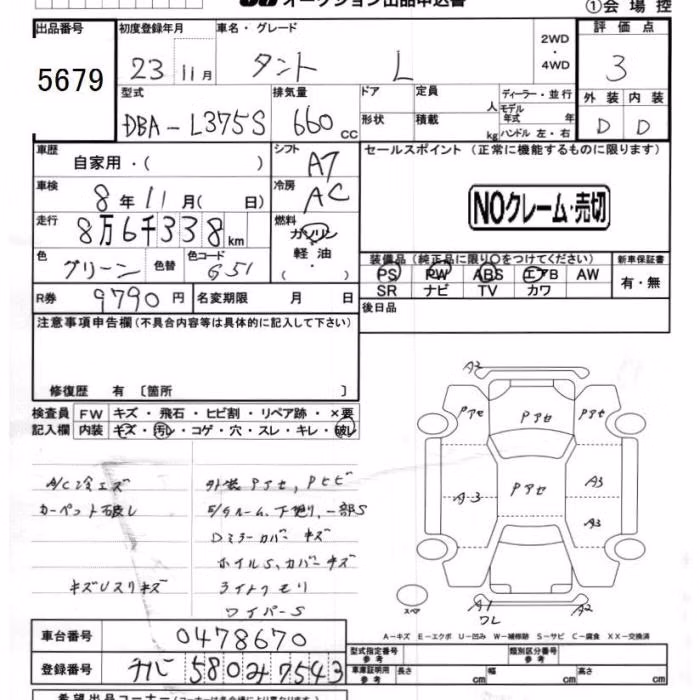 オークション出品申込書
①会場控
出品番号
5679
初度登録年月
23 11月
車名・グレード
タント L
2WD
・
4WD
評価点
3
型式
DBA-L375S
排気量
660 cc
ドア
定員
人
ディーラー・並行
モデル年式 年
形状
積載
kg
ハンドル 左・右
外装 内装
D D
車歴
自家用・( )
シフト
A7
セールスポイント (正常に機能するものに限ります)
車検
8年11月( 日)
冷房
AC
NOクレーム・売切
走行
8万6千338km
燃料
ガソリン
軽油
( ・ )
色
グリーン
色替
色コード
G51
装備品 (純正品に限り○をつけてください)
新車保証書
PS PW ABS エアB AW
有・無
SR ナビ TV カワ
R券 9790円
名変期限 月 日
後日品
注意事項申告欄 (不具合内容等は具体的に記入して下さい)
修復歴 有 〔箇所 〕
検査員記入欄
FW キズ・飛石・ヒビ割・リペア跡・×要
内装 キズ・汚レ・コゲ・穴・スレ・キレ・破レ
A/C冷エズ
カーペット破レ
キズUスリキズ
外装Pアセ、Pヒビ
E/gルーム、下廻り、一部S
Dミラーカバーキズ
ホイルS、カバーキズ
ライトクモリ
ワイパーS
A2
Pアセ
Pアセ
Pアセ
A3
Pアセ
A3
A3
スペア
A1
ワレ
A2
A-キズ E-エクボ U-凹み W-補修跡 S-サビ C-腐食 XX-交換済
車台番号 0478670
登録番号 チバ 580 み 7543
型式指定番号
参考
類別区分番号
参考
車庫証明用
参考
長さ cm
幅 cm
高さ cm
希望出品コーナー